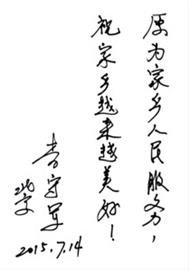 愿为家乡人民服务，
祝家乡越来越美好！
李守军
2015.7.14